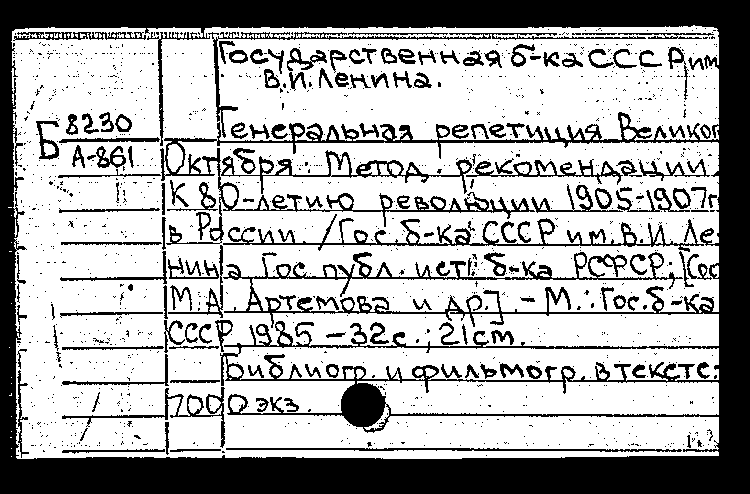 Государственная б-ка СССР им
В.И.Ленина.
Б 8230
А-861
Генеральная репетиция Великог
Октября: Метод. рекомендации.
К 80-летию революции 1905-1907г
в России /Гос. б-ка СССР им. В.И. Ле-
нина, Гос. публ. ист. б-ка РСФСР; [Сос
М.А. Артемова и др.]. - М.: Гос. б-ка
СССР, 1985 - 32с.; 21см.
Библиогр. и фильмогр. в тексте:
7000 экз.